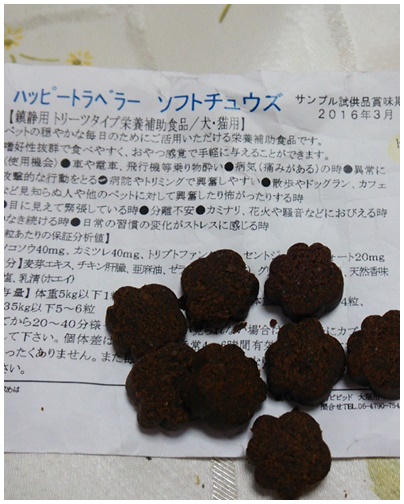 ハッピートラベラー ソフトチュウズ
サンプル試供品賞味期
2016年3月
【鎮静用 トリーツタイプ栄養補助食品/犬・猫用】
ペットの穏やかな毎日のためにご活用いただける栄養補助食品です。
嗜好性抜群で食べやすく、おやつ感覚で手軽に与えることができます。
(使用機会)●車や電車、飛行機等乗り物酔い●病気(痛みがある)の時●異常に
攻撃的な行動をとる●病院やトリミングで興奮しやすい●散歩やドッグラン、カフェ
など見知らぬ人や他のペットに対して興奮したり怖がったりする時
●目に見えて緊張している時●分離不安●カミナリ、花火や騒音などにおびえる時
なき続ける時●日常の習慣の変化がストレスに感じる時
粒あたりの保証分析値】
ソウ40mg、カミツレ40mg、トリプトファン
セントジ
ート20mg
分】麦芽エキス、チキン肝臓、亜麻油、ゼ
天然香味
塩、乳清(ホエイ)
与量】体重5kg以下1
35kg以下5~6粒
てから20~40分様
られない場合
にカプ
して下さい。個体差は
4~6時間有
ったくありません。また
さい。
ビビッド 大阪
問合せTEL.06-4790-75